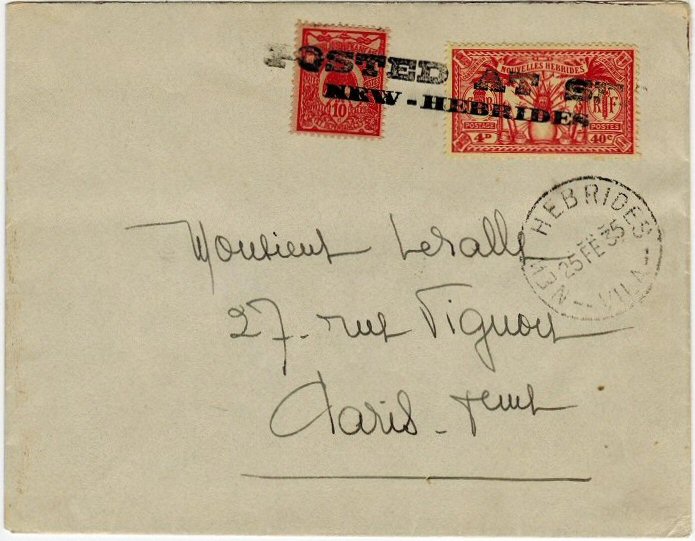 POSTED AT S
NEW-HEBRIDES
10
NOUVELLES HEBRIDES
RF
POSTAGE POSTES
4D 40c
NEW HEBRIDES
25 FE 35
VILA
Monsieur Lesalle
27. rue Vignon
Paris